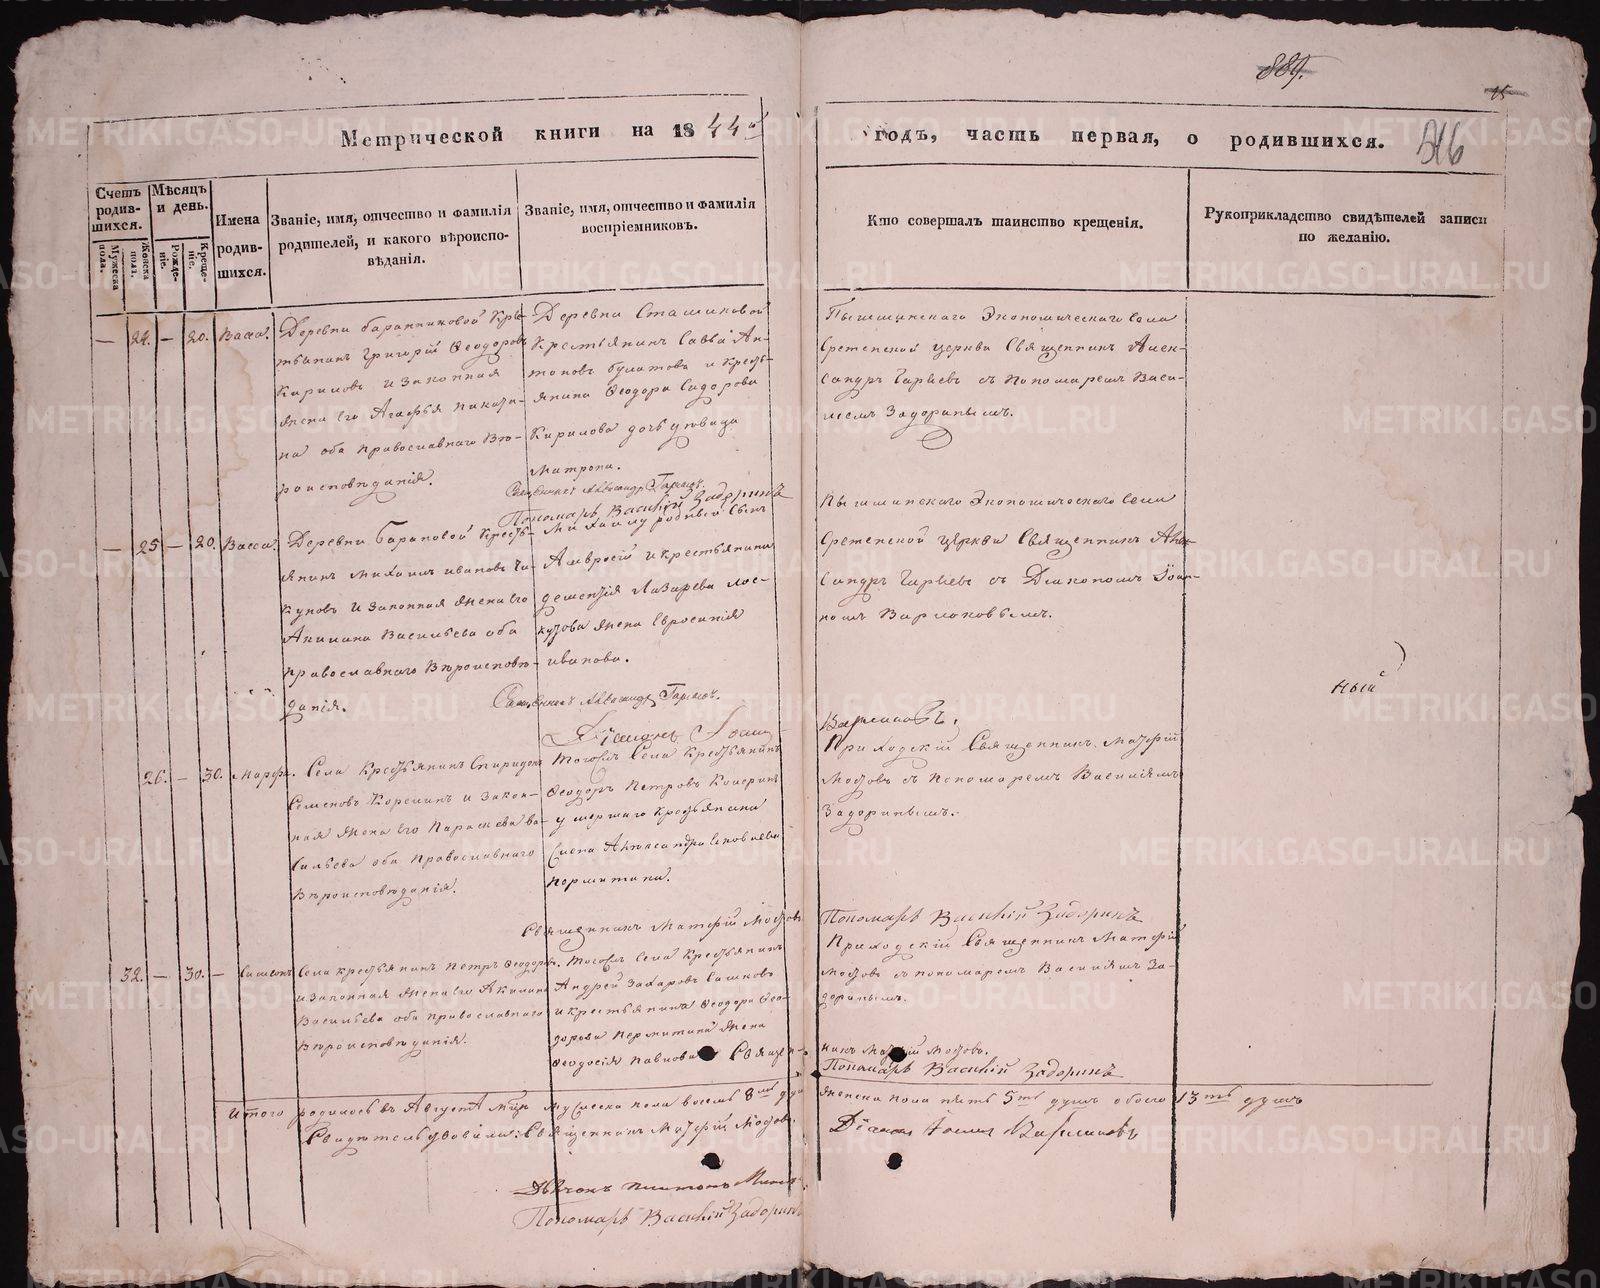 889.
15
Метрической книги на 1844й
годъ, часть первая, о родившихся.
516
Счетъ родив-шихся.
Мужеска пола.
Женска пола.
Мѣсяцъ и день.
Рожде-ніе.
Креще-ніе.
Имена родив-шихся.
Званіе, имя, отчество и фамилія
родителей, и какого вѣроиспо-
вѣданія.
Званіе, имя, отчество и фамилія
воспріемниковъ.
Кто совершалъ таинство крещенія.
Рукоприкладство свидѣтелей записи
по желанію.
— 24. — 20. Васса.
Деревни Баранниковой Кре-
стьянинъ Григорій Ѳеодоровъ
Кириловъ и законная
жена его Агафья Никити-
на оба православнаго Вѣ-
роисповѣданія.
Деревни Сташковой
Крестьянинъ Савва Ан-
тоновъ Булатовъ и Кресть-
янина Ѳеодора Сидорова
Кирилова дочь дѣвица
Матрона.
Священникъ Александръ Гаряевъ.
Пономарь Василій Задоринъ
Пышминскаго Экономическаго села
Срѣтенской церкви Священникъ Алек-
сандръ Гаряевъ съ Пономаремъ Васи-
ліемъ Задоринымъ.
— 25 — 20. Васса.
Деревни Барановой Кресть-
янинъ Михаилъ Ивановъ
и законная жена его
Акилина Васильева оба
православнаго Вѣроисповѣ-
данія.
Михаилу родный сынъ
Амвросій и крестьянина
Лазарева
жена Евросинія
Иванова.
Священникъ Александръ Гаряевъ.
Діаконъ Іоаннъ
Пышминскаго Экономическаго села
Срѣтенской церкви Священникъ Алек-
сандръ Гаряевъ съ Діакономъ Іоан-
номъ Варлаковымъ.
ный
Варлаковъ.
26. — 30. Марфа.
Села Крестьянинъ Спиридонъ
Семеновъ Коренинъ и закон-
ная жена его Параскева Ва-
сильева оба Православнаго
Вѣроисповѣданія.
Тогожъ Села Крестьянинъ
Ѳеодоръ Петровъ
умершаго Крестьянина
жена Александра
Священникъ Матѳій Мостовъ
Приходскій Священникъ Матѳій
Мостовъ съ Пономаремъ Василіемъ
Задоринымъ.
Пономарь Василій Задоринъ
32. — 30. —
Села крестьянинъ Петръ Ѳеодоровъ
и законная жена его Акилина
Васильева оба православнаго
Вѣроисповѣданія.
Тогожъ Села Крестьянинъ
Андрей Захаровъ
и крестьянина Ѳеодора Ѳео-
дорова жена
Ѳеодосія Павлова. Священ-
Приходскій Священникъ Матѳій
Мостовъ съ пономаремъ Василіемъ За-
доринымъ.
никъ Матѳій Мостовъ.
Пономарь Василій Задоринъ
Итого родилось въ Августѣ мцѣ мужеска пола восемь 8мь душъ
женска пола пять 5ть душъ обоего 13ть душъ
Свидѣтельствовали: Священникъ Матѳій Мостовъ.
Діаконъ Іоаннъ Варлаковъ
Пономарь Василій Задоринъ
METRIKI.GASO-URAL.RU